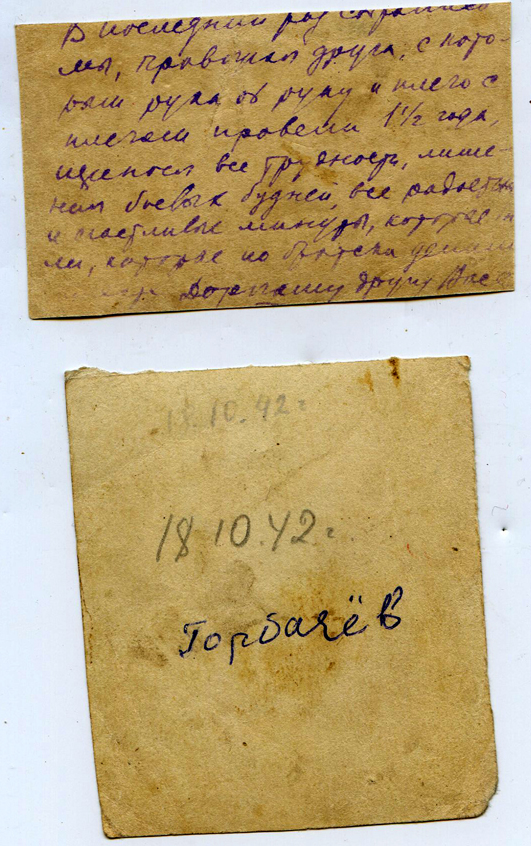 В последний раз собрались
мы, провожая друга, с кото-
рым рука об руку и плечо с
плечом провели 1½ года,
трудности, лише-
ния боевых будней, все радостные
и счастливые минуты, которые
ли, которые по братски делили
Дорогому другу Васе
18.10.42г
18 10.42г.
Горбачёв